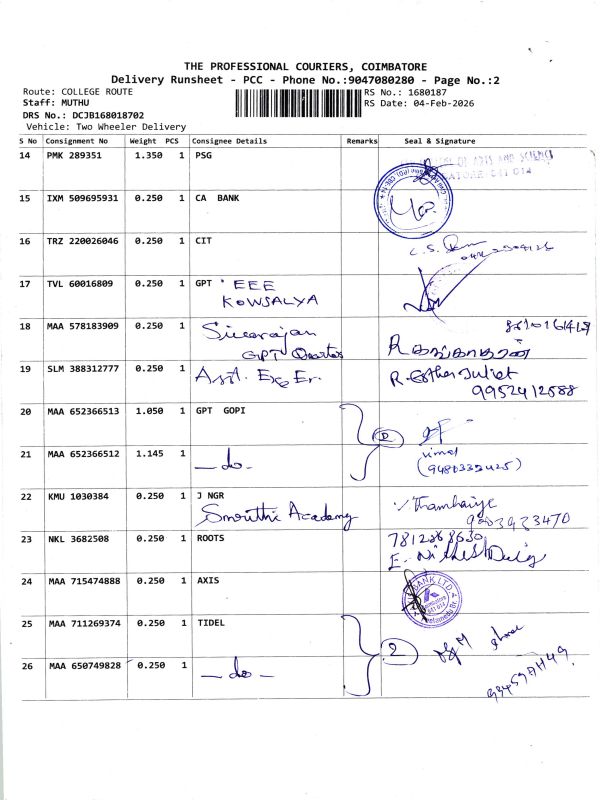 THE PROFESSIONAL COURIERS, COIMBATORE
Delivery Runsheet - PCC - Phone No.:9047080280 - Page No.:2
Route: COLLEGE ROUTE
RS No.: 1680187
Staff: MUTHU
RS Date: 04-Feb-2026
DRS No.: DCJB168018702
Vehicle: Two Wheeler Delivery
S No Consignment No Weight PCS Consignee Details Remarks Seal & Signature
14 PMK 289351 1.350 1 PSG
OF ARTS AND SCIENCE
641 014
15 IXM 509695931 0.250 1 CA BANK
16 TRZ 220026046 0.250 1 CIT
17 TVL 60016809 0.250 1 GPT EEE
KOWSALYA
18 MAA 578183909 0.250 1 Sivarajan
GPT Quarters
19 SLM 388312777 0.250 1 Asst. Exe Er. R. Esther Juliet
9952412588
20 MAA 652366513 1.050 1 GPT GOPI
21 MAA 652366512 1.145 1 — do — vimal
(9480332425)
22 KMU 1030384 0.250 1 J NGR
Smruthi Academy
23 NKL 3682508 0.250 1 ROOTS 7812868630
24 MAA 715474888 0.250 1 AXIS
BANK LTD.
25 MAA 711269374 0.250 1 TIDEL
2
26 MAA 650749828 0.250 1 — do —